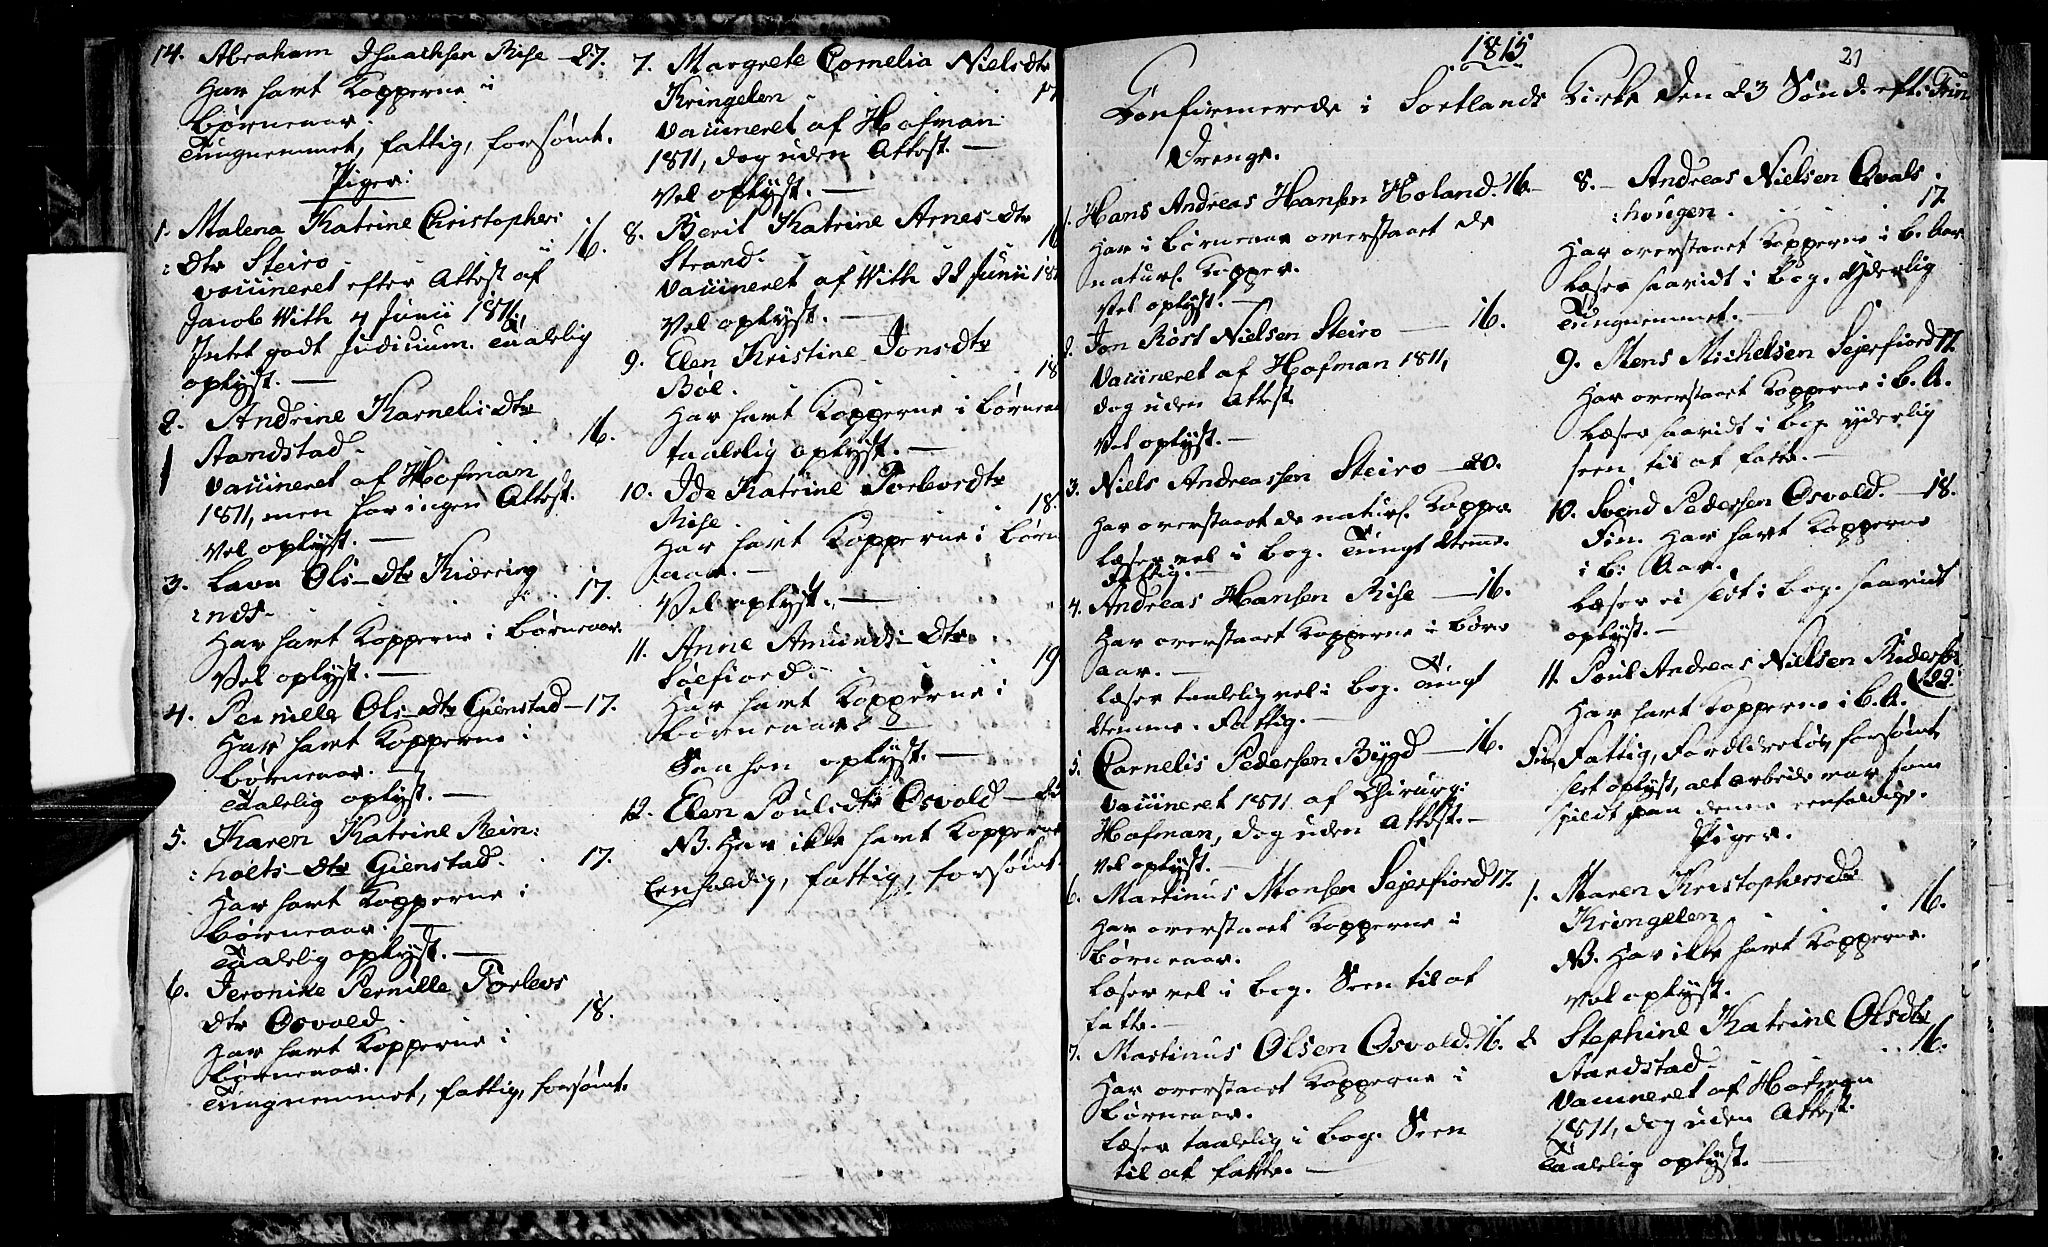 14. Abraham Isaachsen Rise - 27.
Har havt Kopperne i
Børneaar.
Tungnemmet, fattig, forsømt.
Piger:
1. Malena Katrine Christophers
:dtr Steiro. 16.
vaccineret efter Attest af
Jacob With 4 Junii 1811,
Intet godt Judicium. Taalelig
oplyst. —
2. Andrine Karnelis dtr
Aandstad. 16.
vaccineret af Hofman
1811, men har ingen Attest.
Vel oplyst. —
3. Lava Ols-dtr Kiærring
:nds. 17.
Har havt Kopperne i Børneaar.
Vel oplyst. —
4. Pernille Ols-dtr Gienstad - 17.
Har havt Kopperne i
Børneaar. —
Taalelig oplyst. —
5. Karen Katrine Rein:
:holts-dtr Gienstad. 17.
Har havt Kopperne i
Børneaar. —
Taalelig oplyst. —
6. Jeronike Pernille Torlevs
dtr Osvold. 18.
Har havt Kopperne i
Børneaar.
Tungnemmet, fattig, forsømt.
7. Margrete Cornelia Nielsdtr
Kringelen. 17
vaccineret af Hofman
1811, dog uden Attest. —
Vel oplyst. —
8. Berit Katrine Arnes-dtr
Strand. 16
Vaccineret af With 22 Junii 181
Vel oplyst. —
9. Elen Kristine Jonsdtr
Bøe. 18
Har havt Kopperne i Børnea
taalelig oplyst. —
10. Ide Katrine Torlevsdtr
Rise. 18.
Har havt Kopperne i Børn
aar. —
Vel oplyst. —
11. Anne Amunds-Dtr
Löefiord. 19
Har havt Kopperne i
Børneaar. —
Saa hen oplyst. —
12. Elen Poulsdtr Osvold —
NB. Har ikke havt Kopperne
Eenfoldig, fattig, forsømt.
1815 21
Confirmerede i Sortlands Kirke den 23 Sønd. eft. Trin
Drenge.
1. Hans Andreas Hansen Holand. 16.
Har i Børneaar overstaaet de
naturl. Kopper.
Vel oplyst. —
2. Jon Röst Nielsen Steiro — 16.
Vaccineret af Hofman 1811,
dog uden Attest.
Vel oplyst. —
3. Niels Andreassen Steiro - 20.
Har overstaaet de naturl. Kopper
læser vel i Bog. Tungt Nemme.
fattig. —
4. Andreas Hansen Rise — 16.
Har overstaaet Kopperne i Børne
aar. —
Læser taalelig vel i Bog. Tungt
Nemme. Fattig. —
5. Cornelis Pedersen Bÿgd — 16.
Vaccineret 1811 af Chirurg:
Hofman, dog uden Attest. —
vel oplyst. —
6. Martinus Monsen Sejerfiord 17.
Har overstaaet Kopperne i
Børneaar.
Læser vel i Bog. Seen til at
fatte. —
7. Martinus Olsen Osvold. 16.
Har overstaaet Kopperne i
Børneaar.
Læser taalelig i Bog. Seen
til at fatte. —
8. — Andreas Nielsen Qvals
:hougen. 17.
Har overstaaet Kopperne i B. Aar
Læser saavidt i Bog. Yderlig
Tungnemmet. —
9. Mens Michelsen Sejerfiord 17.
Har overstaaet Kopperne i B. A.
Læser saavidt i Bog yderlig
seen til at fatte. —
10. Svend Pedersen Osvold. — 18.
Fin. Har havt Kopperne
i B: Aar.
Læser ei slet i Bog. saavidt
oplyst. —
11. Poul Andreas Nielsen
Har havt Kopperne i B. A.
Fin, Fattig, Forældreløs, forsømt,
slet oplyst, alt Arbeide var som
spildt paa denne eenfoldige.
Piger.
1. Maren Kristophersdtr
Kringelen. 16.
NB. Har ikke havt Kopperne.
Vel oplyst.
2. Stephine Katrine Olsdtr
Aandstad. 16.
Vaccineret af Hofman
1811, dog uden Attest.
Taalelig oplyst. —